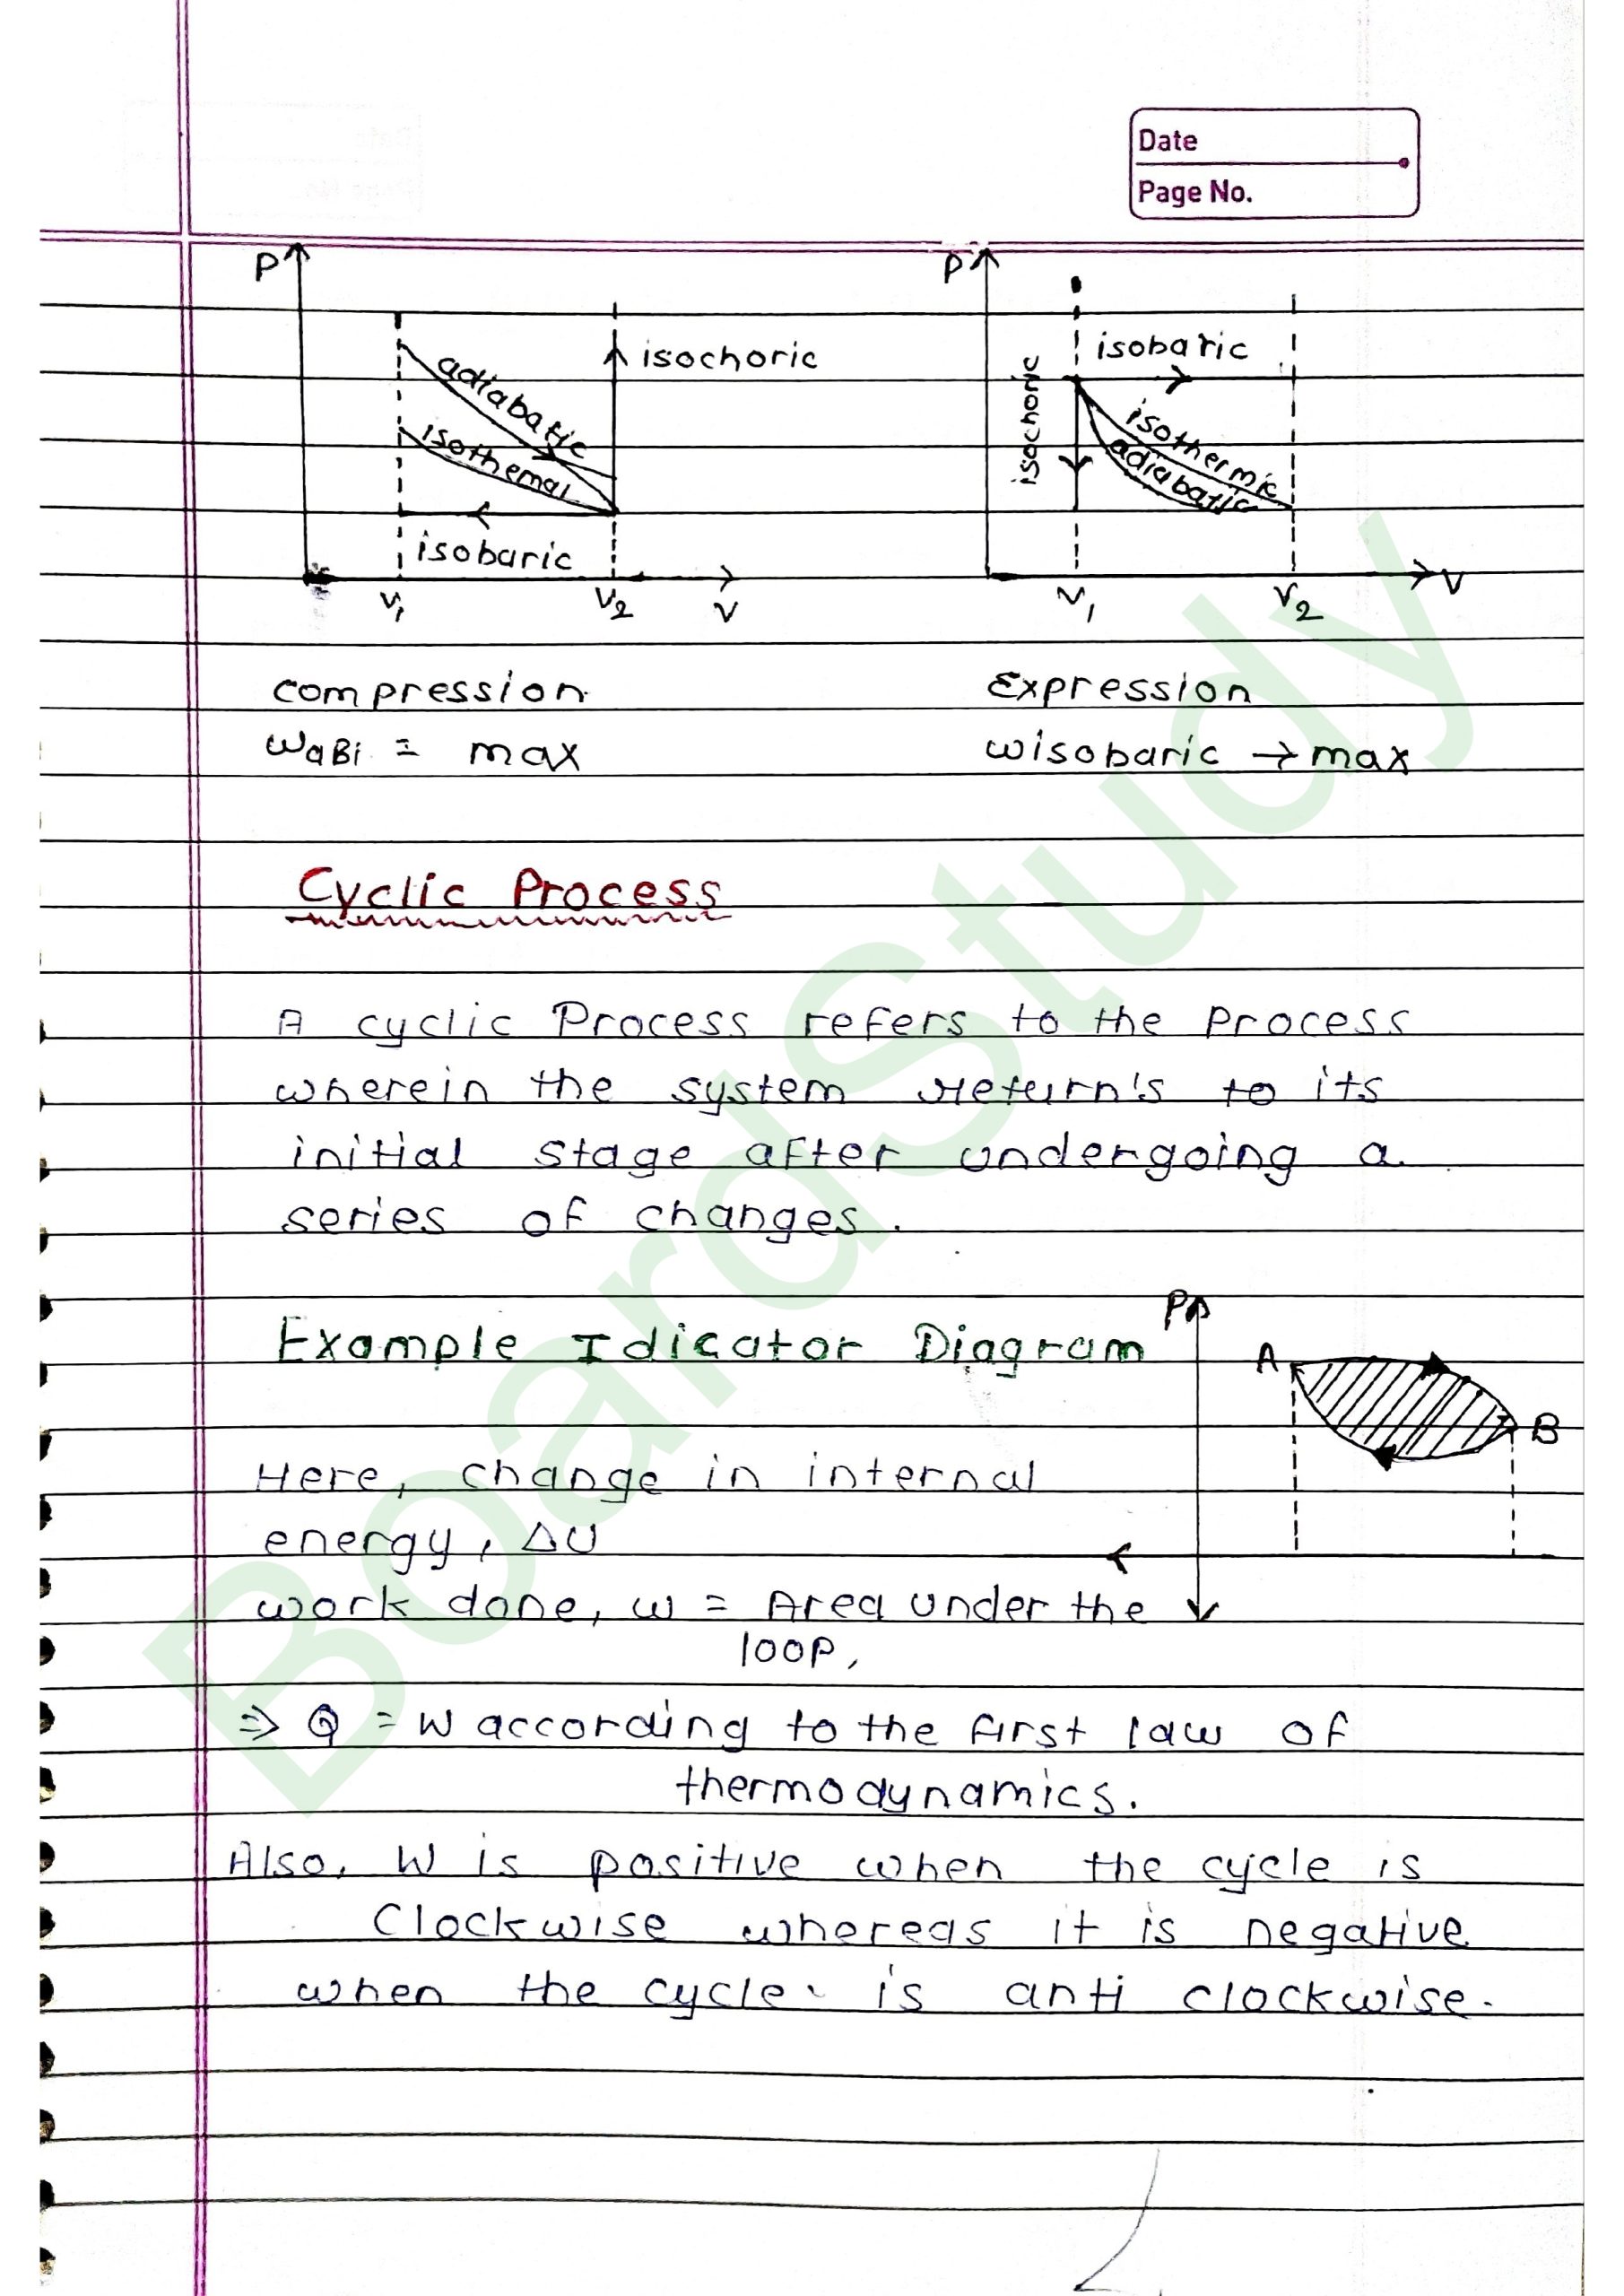 Date
Page No.
P
isochoric
adiabatic
isothemal
isobaric
V1
V2
V
P
isobaric
isochoric
isothermic
adiabatic
V1
V2
V
compression
WaBi = max
Expression
wisobaric → max
Cyclic Process
A cyclic Process refers to the process
wherein the system return's to its
initial stage after undergoing a
series of changes.
Example Idicator Diagram
P
A
B
Here, change in internal
energy, ΔU
work done, w = Area under the
loop,
⇒ Q = W according to the first law of
thermodynamics.
Also, W is positive when the cycle is
Clockwise whereas it is negative
when the cycle is anti clockwise.
BoardStudy